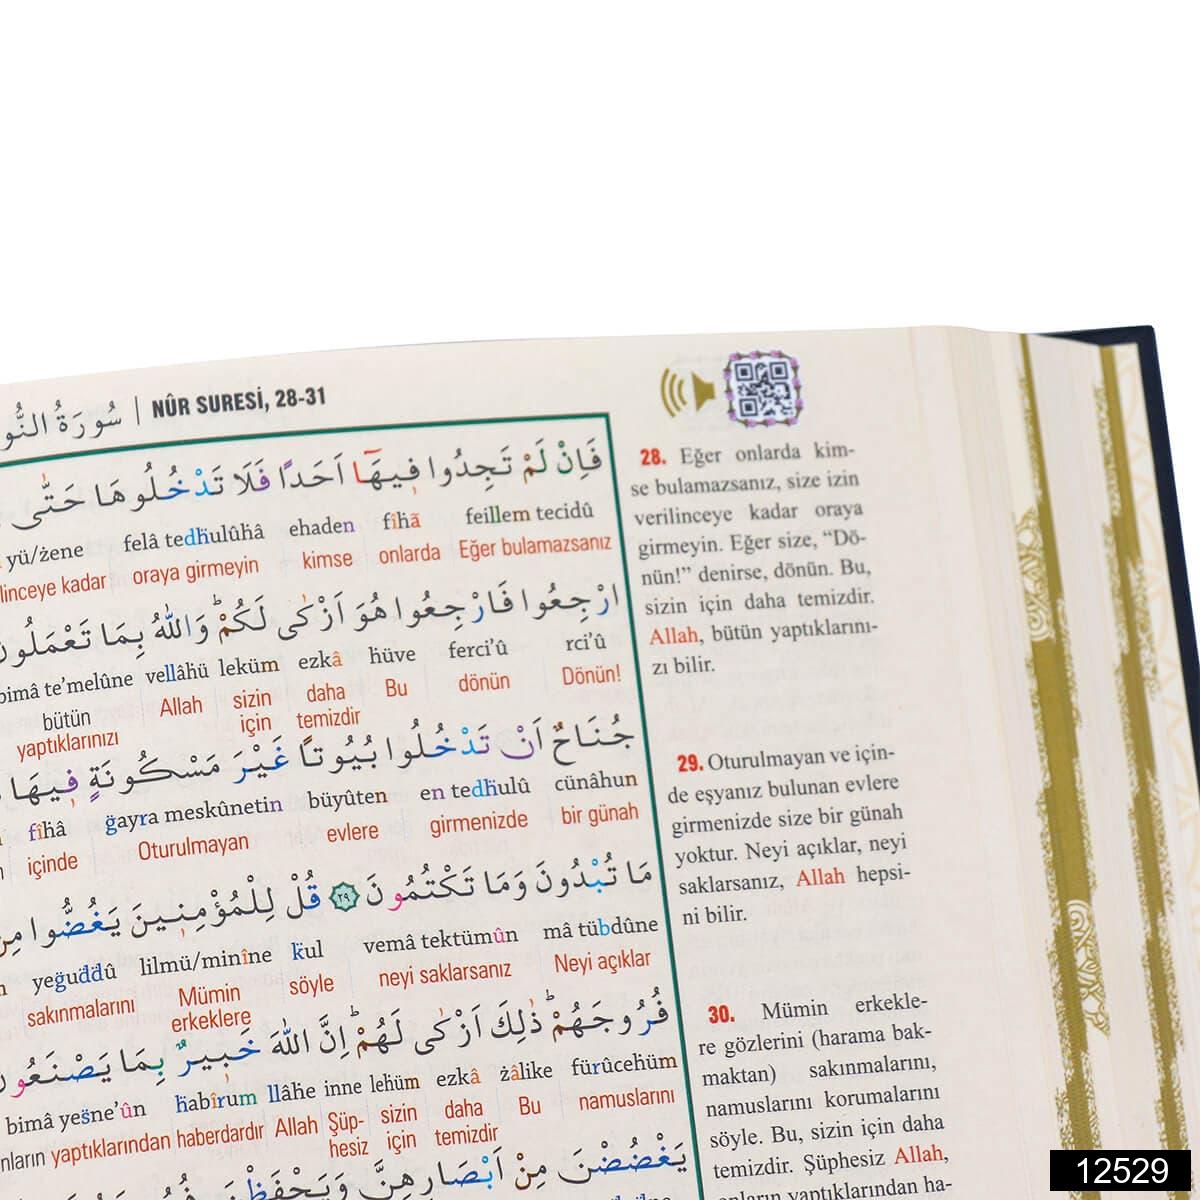 سُورَةُ النُّو | NÛR SURESİ, 28-31
فَاِنْ لَمْ تَجِدُوا فٖيهَٓا اَحَدًا فَلَا تَدْخُلُوهَا حَتّٰى
yü/żene felâ tedḣulûhâ ehaden fîhã feillem tecidû
linceye kadar oraya girmeyin kimse onlarda Eğer bulamazsanız
ارْجِعُوا فَارْجِعُوا هُوَ اَزْكٰى لَكُمْ وَاللّٰهُ بِمَا تَعْمَلُونَ
bimâ te’melûne vellâhü leküm ezkâ hüve ferci’û rci’û
bütün yaptıklarınızı Allah sizin için daha temizdir Bu dönün Dönün!
جُنَاحٌ اَنْ تَدْخُلُوا بُيُوتًا غَيْرَ مَسْكُونَةٍ فٖيهَا
fîhâ ğayra meskûnetin büyûten en tedḣulû cünâhun
içinde Oturulmayan evlere girmenizde bir günah
مَا تُبْدُونَ وَمَا تَكْتُمُونَ ٢٩ قُلْ لِلْمُؤْمِنٖينَ يَغُضُّوا مِنْ
yeğuddû lilmü/minîne kul vemâ tektümûn mâ tübdûne
sakınmalarını Mümin erkeklere söyle neyi saklarsanız Neyi açıklar
فُرُوجَهُمْ ذٰلِكَ اَزْكٰى لَهُمْ اِنَّ اللّٰهَ خَبٖيرٌ بِمَا يَصْنَعُونَ
bimâ yesne’ûn ḣabîrum llâhe inne lehüm ezkâ żâlike fürûcehüm
nların yaptıklarından haberdardır Allah Şüphesiz sizin için daha temizdir Bu namuslarını
يَغْضُضْنَ مِنْ اَبْصَارِهِنَّ وَيَحْفَظْنَ
28. Eğer onlarda kim-
se bulamazsanız, size izin
verilinceye kadar oraya
girmeyin. Eğer size, “Dö-
nün!” denirse, dönün. Bu,
sizin için daha temizdir.
Allah, bütün yaptıklarını-
zı bilir.
29. Oturulmayan ve için-
de eşyanız bulunan evlere
girmenizde size bir günah
yoktur. Neyi açıklar, neyi
saklarsanız, Allah hepsi-
ni bilir.
30. Mümin erkekle-
re gözlerini (harama bak-
maktan) sakınmalarını,
namuslarını korumalarını
söyle. Bu, sizin için daha
temizdir. Şüphesiz Allah,
onların yaptıklarından ha-
12529